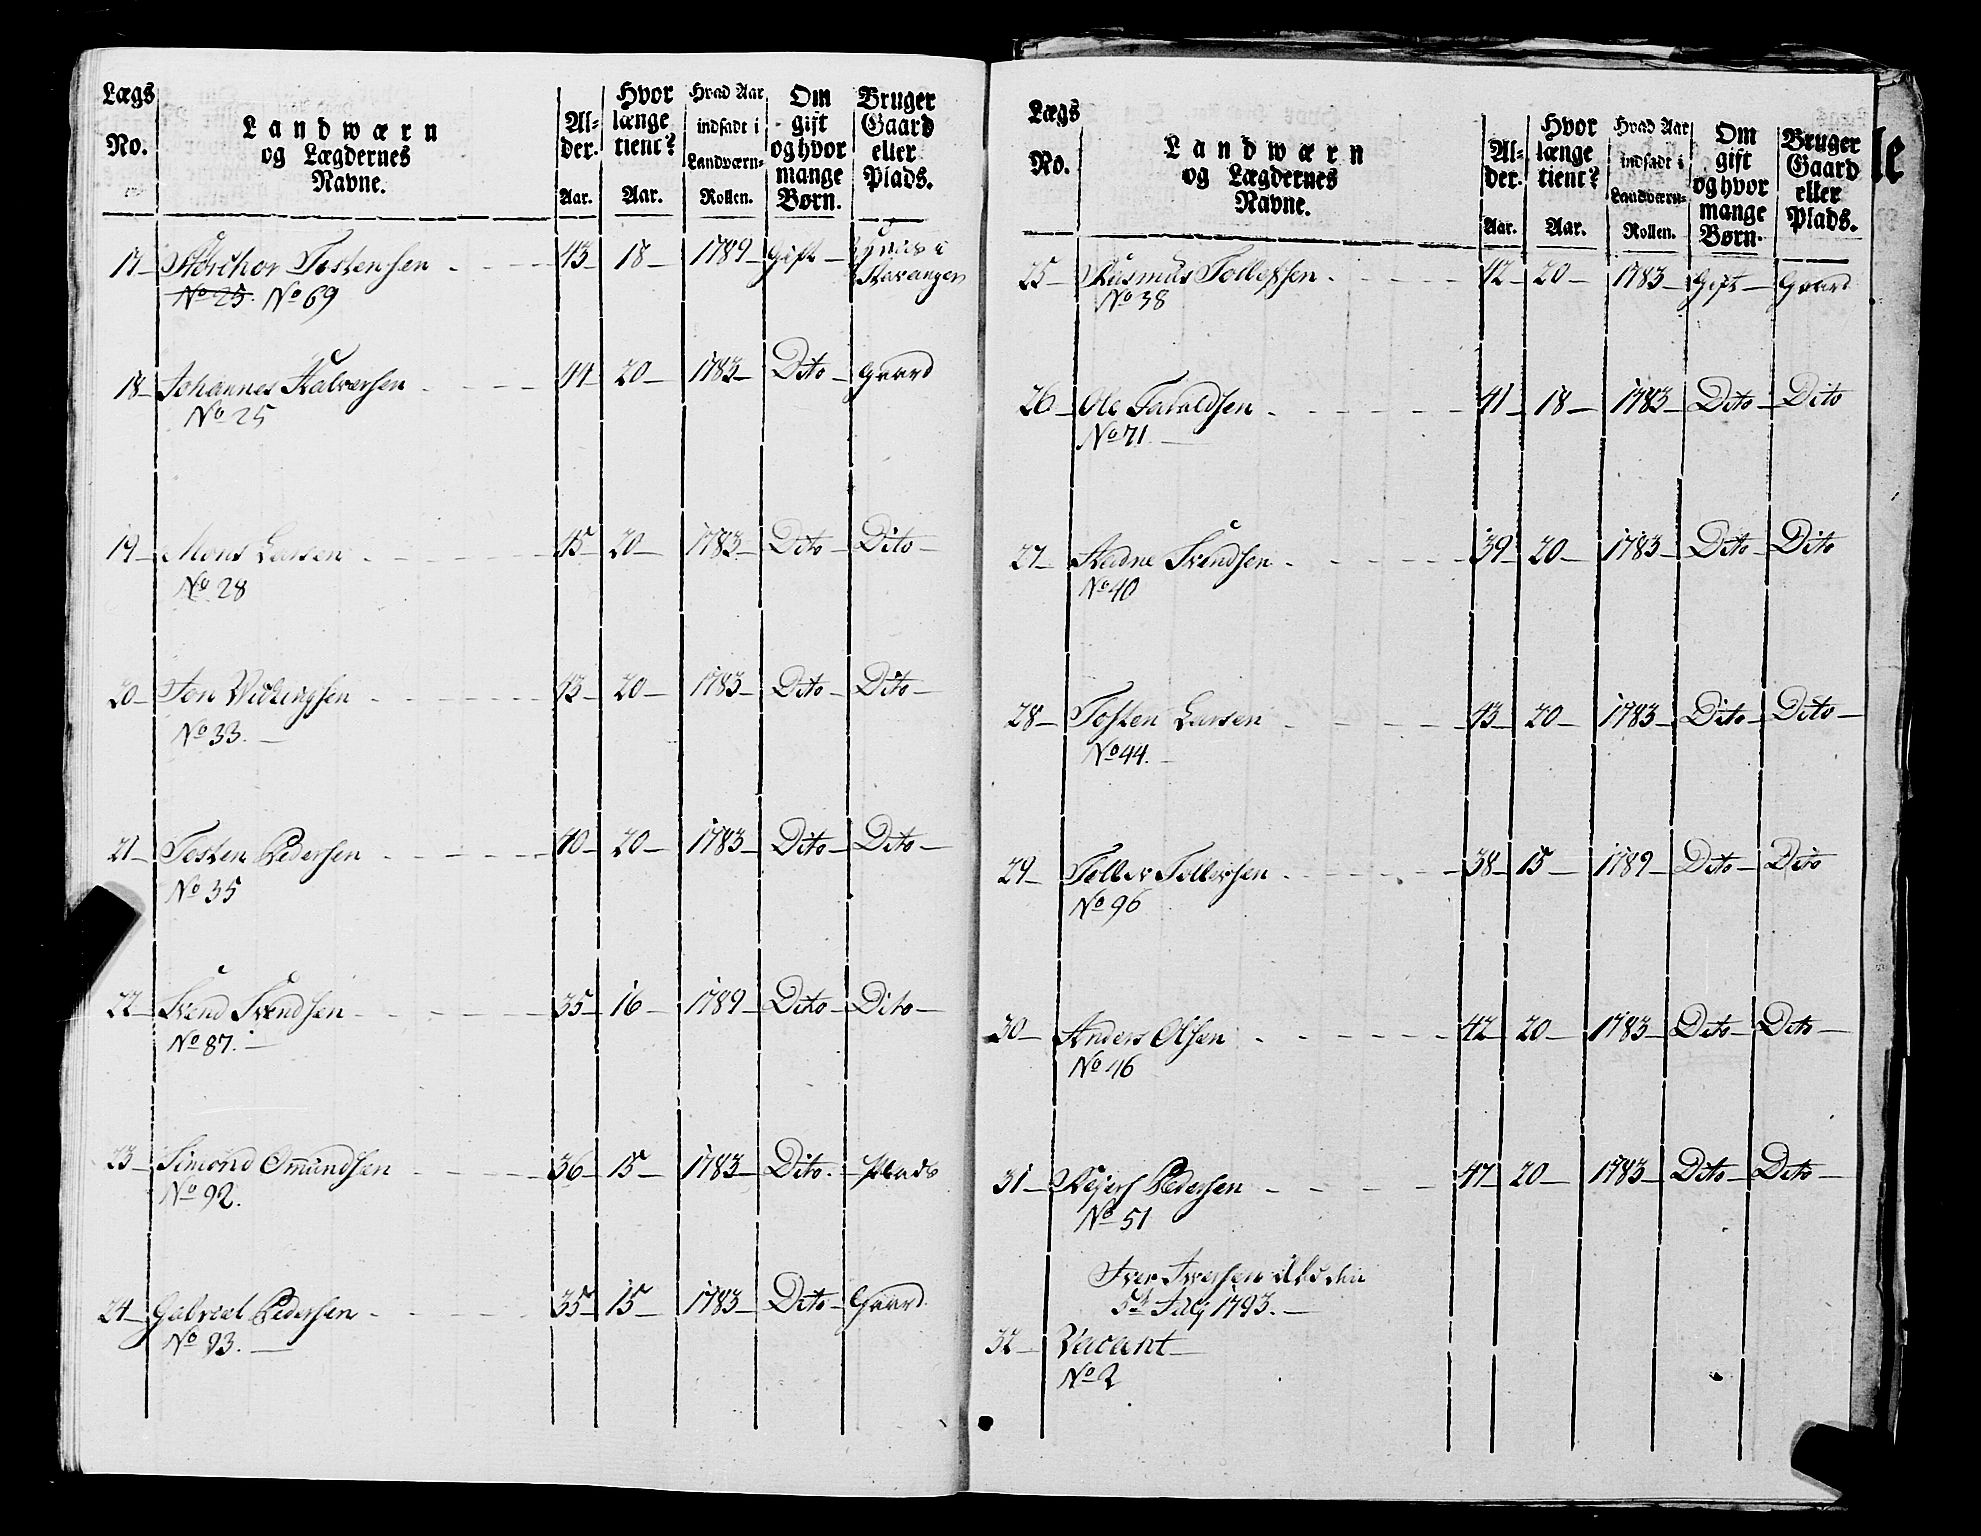 Lægs No. Landwærn og Lægdernes Navne. Al-der. Aar. Hvor længe tient? Aar. Hvad Aar indsadt i Landværn-Rollen. Om gift og hvor mange Børn. Bruger Gaard eller Plads.
17 Tostensen 43 18 1789 Gift i Stavanger
No 25. No 69
18 Johannes Halversen 44 20 1783 Dito Gaard
No 25
19 Mons Larsen 45 20 1783 Dito Dito
No 28
20 Jon Vickingsen 43 20 1783 Dito Dito
No 33.
21 Tosten Pedersen 40 20 1783 Dito Dito
No 35
22 Svend Svendsen 35 16 1789 Dito Dito
No 87.
23 Simond Omundsen 36 15 1783 Dito. Plads
No 92.
24 Gabriel Pedersen 35 15 1783 Dito Gaard
No 93.
Lægs No. Landwærn og Lægdernes Navne. Al-der. Aar. Hvor længe tient? Aar. Hvad Aar indsadt i Landværn-Rollen. Om gift og hvor mange Børn. Bruger Gaard eller Plads.
25 Rasmus Tollefsen 42 20 1783 Gift Gaard
No 38
26 Ole 41 18 1783 Dito Dito
No 71.
27 Svendsen 39 20 1783 Dito Dito
No 40
28 Tosten Larsen 43 20 1783 Dito Dito
No 44.
29 Tollev Tollevsen 38 15 1789 Dito Dito
No 96
30 Anders Olsen 42 20 1783 Dito Dito
No 46
31 Pedersen 47 20 1783 Dito Dito
No 51
Iver Iversen den
5te July 1793.
32 Vacant
No 2
le